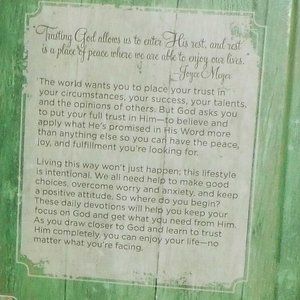 Trusting God allows us to enter His rest, and rest
is a place of peace where we are able to enjoy our lives.
Joyce Meyer
The world wants you to place your trust in
your circumstances, your success, your talents,
and the opinions of others. But God asks you
to put your full trust in Him—to believe and
apply what He's promised in His Word more
than anything else so you can have the peace,
joy, and fulfillment you're looking for.
Living this way won't just happen; this lifestyle
is intentional. We all need help to make good
choices, overcome worry and anxiety, and keep
a positive attitude. So where do you begin?
These daily devotions will help you keep your
focus on God and get what you need from Him.
As you draw closer to God and learn to trust
Him completely, you can enjoy your life—no
matter what you're facing.